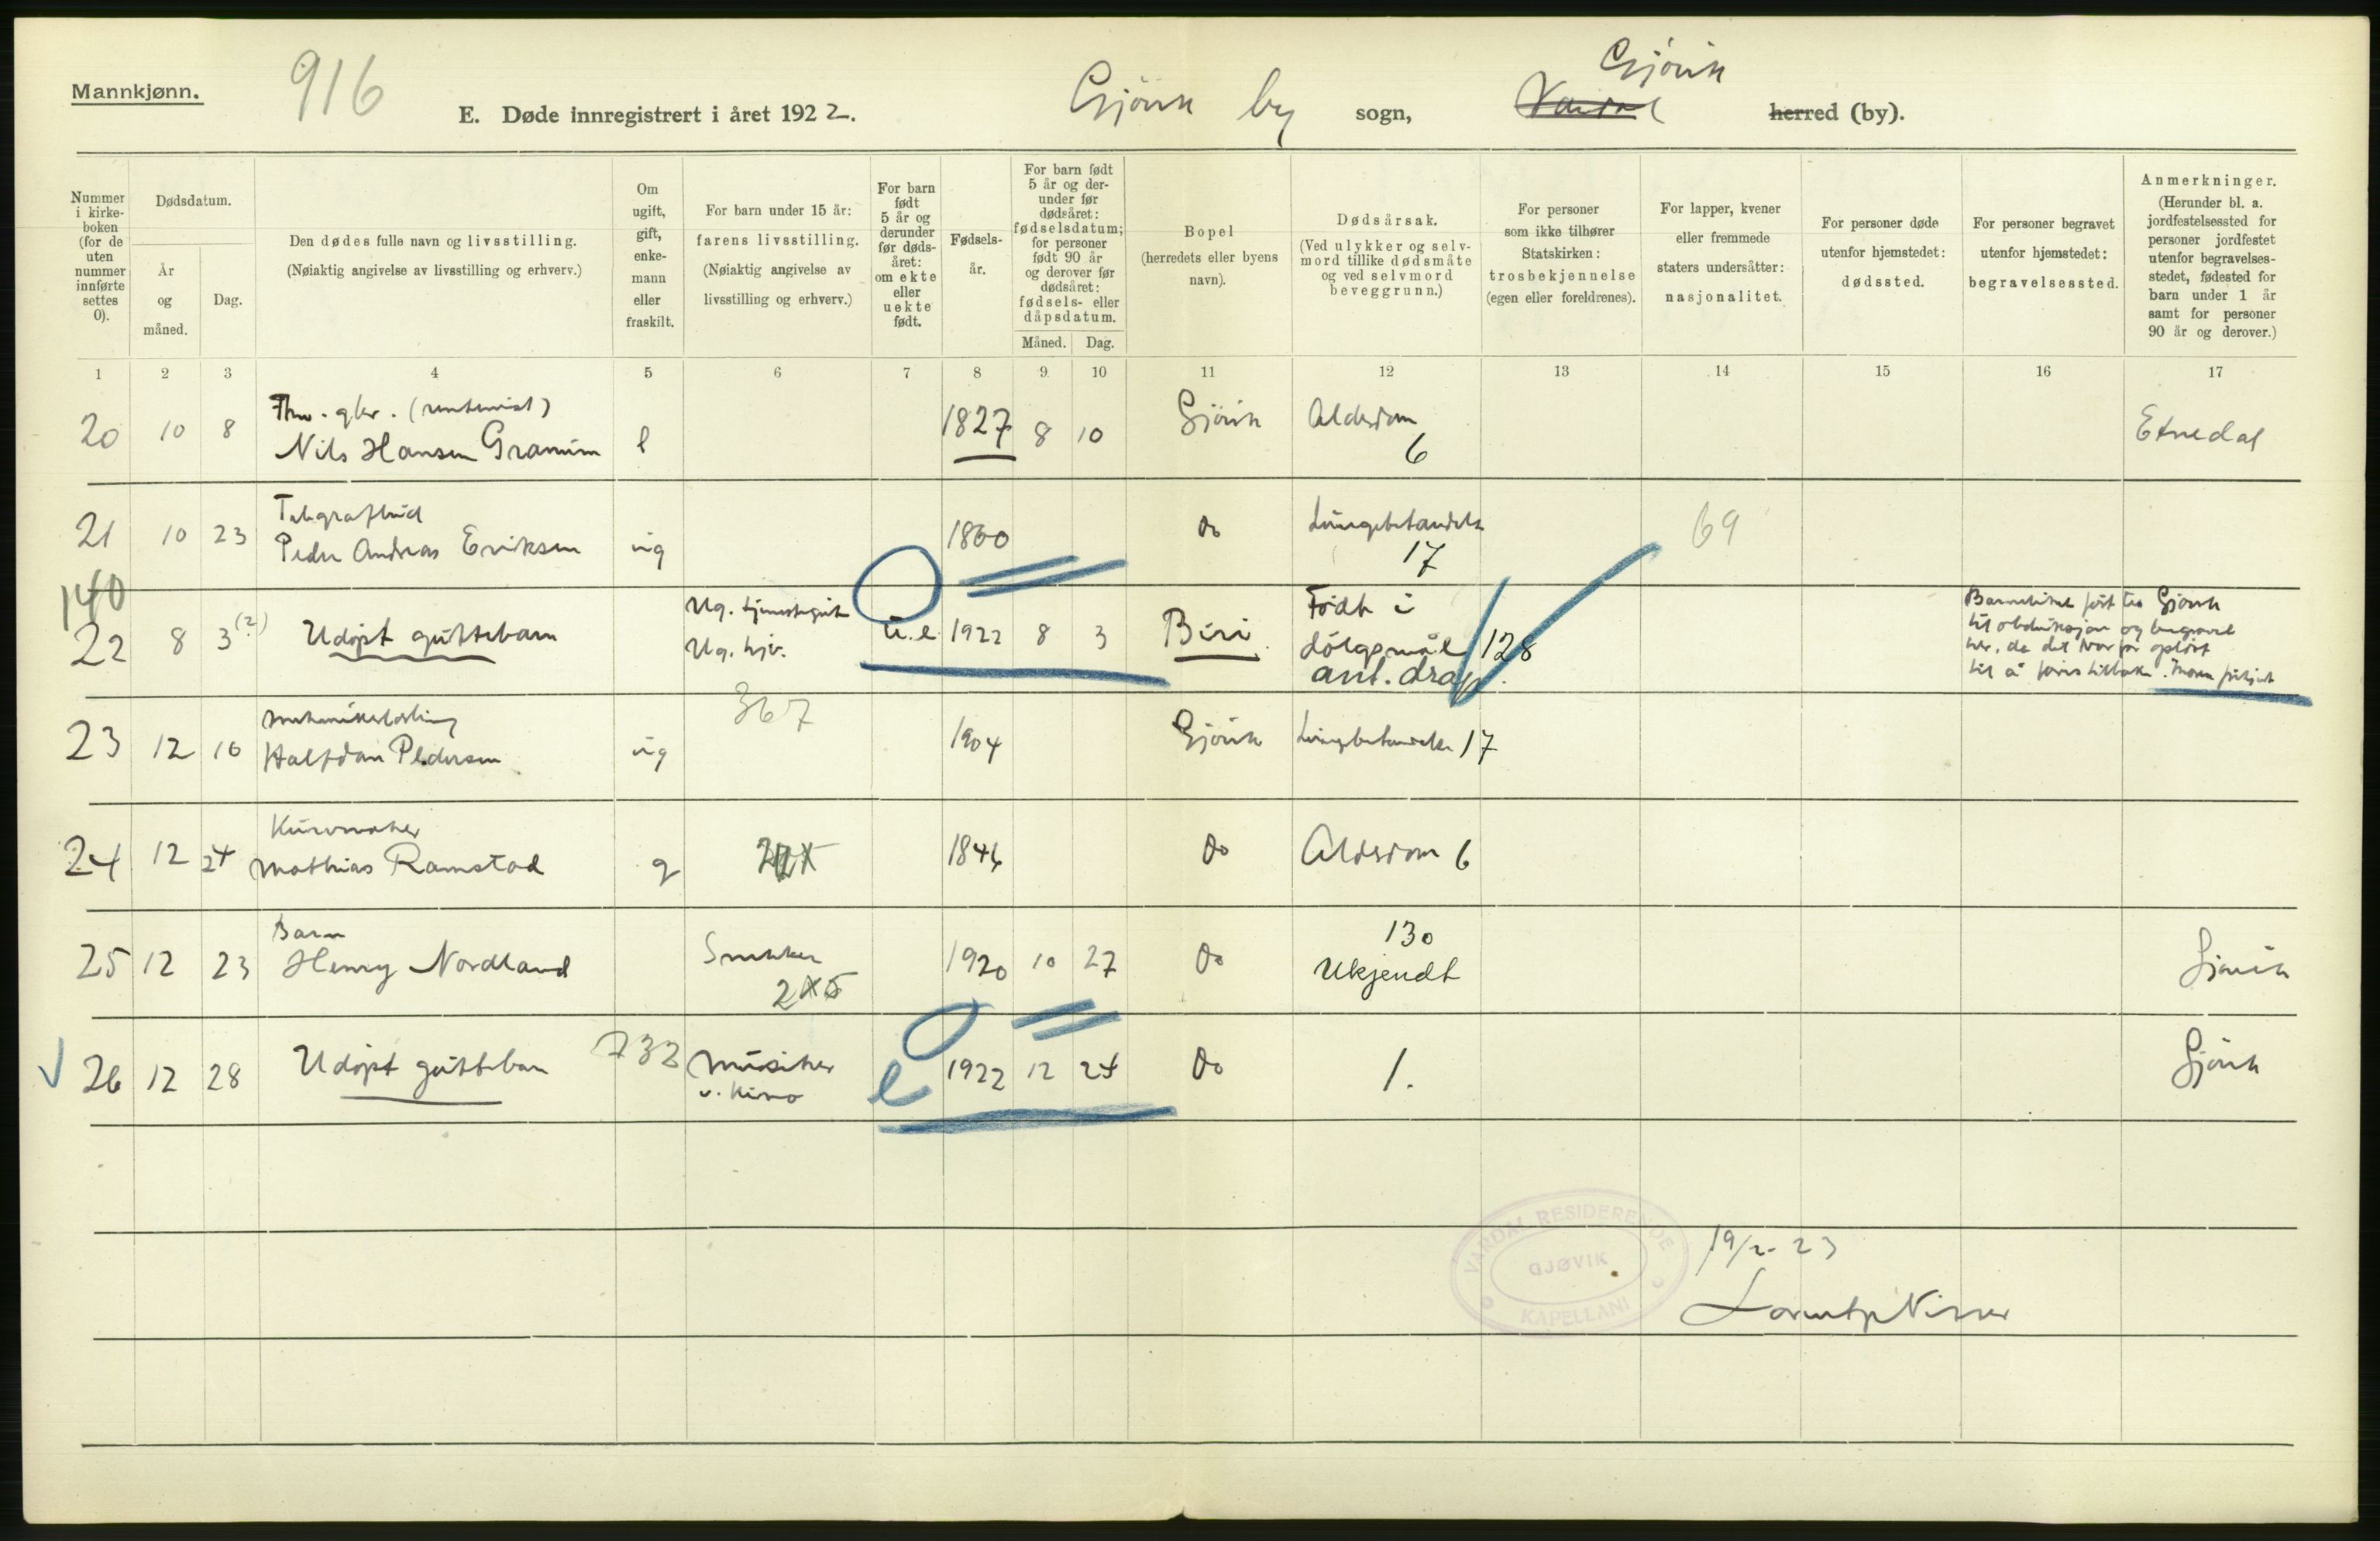 Mannkjønn.
916
E. Døde innregistrert i året 1922.
Gjövik by sogn,
Gjövik
Vardal herred (by).
Nummer i kirke-boken (for de uten nummer innførte settes 0).
Dødsdatum.
År og måned.
Dag.
Den dødes fulle navn og livsstilling.
(Nøiaktig angivelse av livsstilling og erhverv.)
Om ugift, gift, enke-mann eller fraskilt.
For barn under 15 år:
farens livsstilling.
(Nøiaktig angivelse av livsstilling og erhverv.)
For barn født 5 år og derunder før døds-året: om ekte eller uekte født.
Fødsels-år.
For barn født 5 år og der-under før dødsåret: fødselsdatum; for personer født 90 år og derover før dødsåret: fødsels- eller dåpsdatum.
Måned. Dag.
Bopel
(herredets eller byens navn).
Dødsårsak.
(Ved ulykker og selv-mord tillike dødsmåte og ved selvmord beveggrunn.)
For personer som ikke tilhører Statskirken: trosbekjennelse (egen eller foreldrenes).
For lapper, kvener eller fremmede staters undersåtter: nasjonalitet.
For personer døde utenfor hjemstedet: dødssted.
For personer begravet utenfor hjemstedet: begravelsessted.
Anmerkninger.
(Herunder bl. a. jordfestelsessted for personer jordfestet utenfor begravelses-stedet, fødested for barn under 1 år samt for personer 90 år og derover.)
1 2 3 4 5 6 7 8 9 10 11 12 13 14 15 16 17
20 10 8
Nils Hansen Granum
1827 8 10 Gjövik Alderdom
6
Etnedal
21 10 23
Telegrafbud
Peder Andreas Eriksen ug 1860 do
17
69
140
22 8 3 (?) Udöpt guttebarn
Ug. tjenestegutt
Ug.
u.e 1922 8 3 Biri
Född i
dölgsmål 128
ant. drap.
Gjövik
til obduksjon og begravet
her, da det var for oplöst
til å
367
23 12 16
Halfdan Pedersen ug 1904 Gjövik 17
24 12 24
Kurvmaker
Mathias Ramstad g 1846 do Alderdom 6
25 12 23
Barn
Henry Nordland
Snekker
1920 10 27 do
130
Ukjendt
Gjövik
26 12 28 Udöpt guttebarn 732
Musiker
v. Kino
e 1922 12 24 do 1. Gjövik
VARDAL RESIDERENDE KAPELLANI
GJØVIK
19/2-23